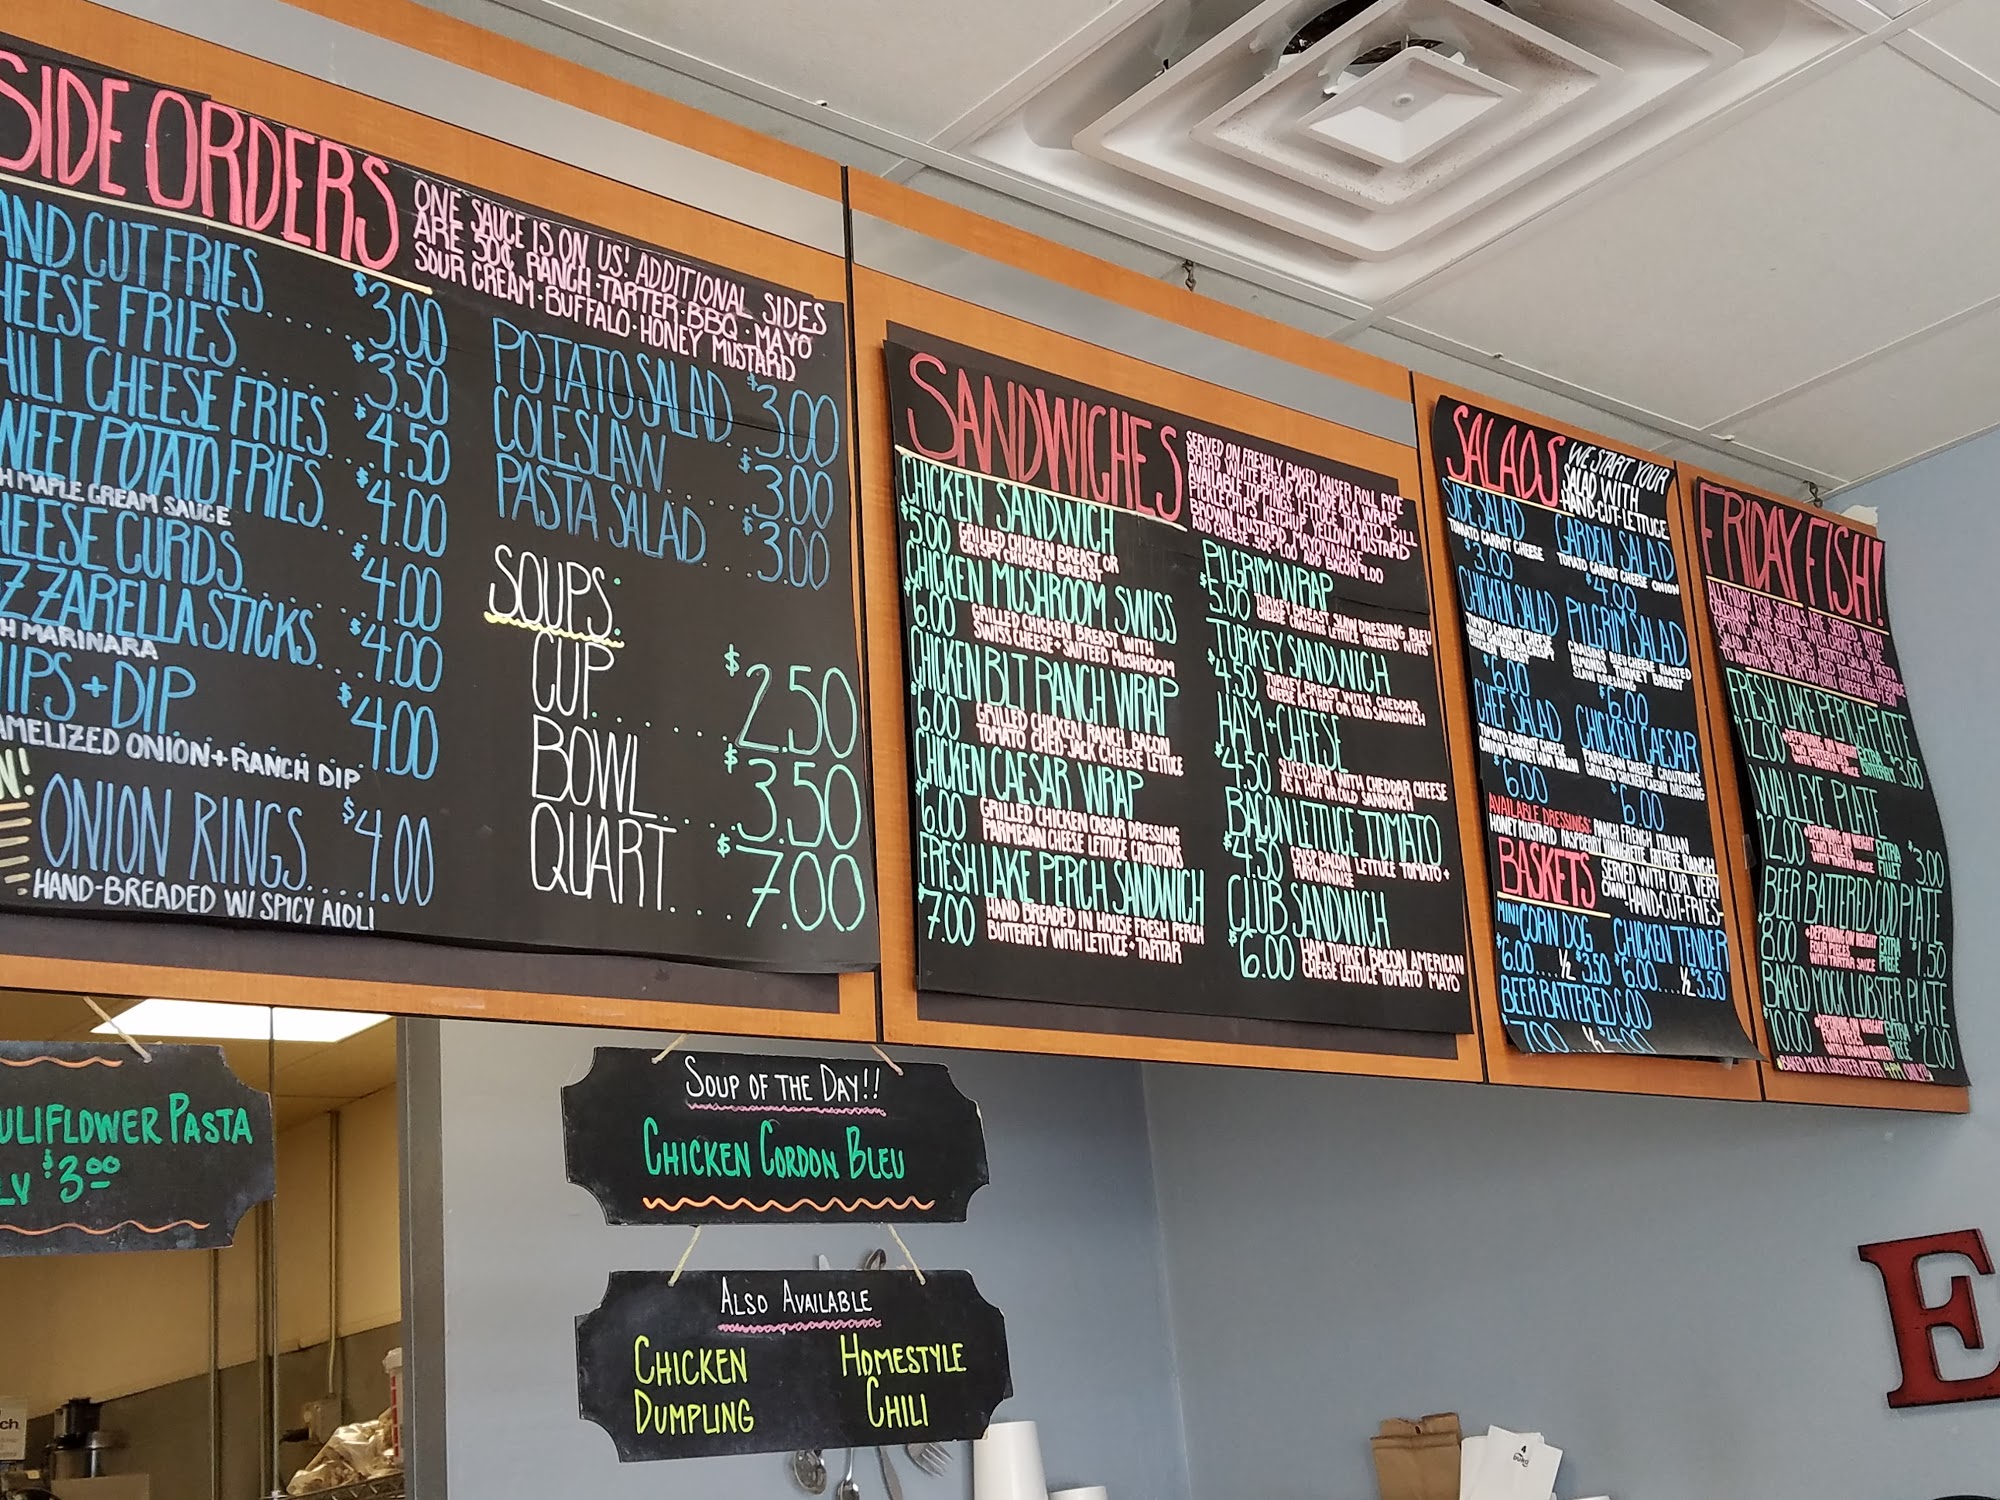 SIDE ORDERS
ONE SAUCE IS ON US! ADDITIONAL SIDES
ARE 50¢, RANCH·TARTER·BBQ·MAYO
SOUR CREAM·BUFFALO·HONEY MUSTARD
AND CUT FRIES..... $3.00
HEESE FRIES....... $3.50
HILI CHEESE FRIES... $4.50
WEET POTATO FRIES... $4.00
H MAPLE CREAM SAUCE
HEESE CURDS....... $4.00
ZZARELLA STICKS... $4.00
H MARINARA
HIPS+DIP....... $4.00
AMELIZED ONION+RANCH DIP
W!
ONION RINGS.... $4.00
HAND-BREADED W/ SPICY AIOLI
POTATO SALAD.. $3.00
COLESLAW..... $3.00
PASTA SALAD... $3.00
SOUPS:
CUP....... $2.50
BOWL..... $3.50
QUART.... $7.00
SANDWICHES
SERVED ON FRESHLY BAKED KAISER ROLL RYE
BREAD WHITE BREAD OR MADE AS A WRAP.
AVAILABLE TOPPINGS: LETTUCE TOMATO DILL
PICKLE CHIPS KETCHUP YELLOW MUSTARD
BROWN MUSTARD MAYONNAISE
ADD CHEESE .50¢-1.00 ADD BACON 1.00
CHICKEN SANDWICH
$5.00 GRILLED CHICKEN BREAST OR
CRISPY CHICKEN BREAST
CHICKEN MUSHROOM SWISS
$6.00 GRILLED CHICKEN BREAST WITH
SWISS CHEESE + SAUTEED MUSHROOM
CHICKEN BLT RANCH WRAP
$6.00 GRILLED CHICKEN RANCH BACON
TOMATO CHED-JACK CHEESE LETTUCE
CHICKEN CAESAR WRAP
$6.00 GRILLED CHICKEN CAESAR DRESSING
PARMESAN CHEESE LETTUCE CROUTONS
FRESH LAKE PERCH SANDWICH
$7.00 HAND BREADED IN HOUSE FRESH PERCH
BUTTERFLY WITH LETTUCE + TARTAR
PILGRIM WRAP
$5.00 TURKEY BREAST SLAW DRESSING BLEU
CHEESE CRAISINS LETTUCE ROASTED NUTS
TURKEY SANDWICH
$4.50 TURKEY BREAST WITH CHEDDAR
CHEESE AS A HOT OR COLD SANDWICH
HAM+CHEESE
$4.50 SLICED HAM WITH CHEDDAR CHEESE
AS A HOT OR COLD SANDWICH
BACON LETTUCE TOMATO
$4.50 CRISP BACON LETTUCE TOMATO +
MAYONNAISE
CLUB SANDWICH
$6.00 HAM TURKEY BACON AMERICAN
CHEESE LETTUCE TOMATO MAYO
SALADS
WE START YOUR
SALAD WITH
HAND-CUT-LETTUCE
SIDE SALAD
TOMATO CARROT CHEESE
$3.00
GARDEN SALAD
TOMATO CARROT CHEESE ONION
$4.00
CHICKEN SALAD
TOMATO CARROT CHEESE
$6.00
PILGRIM SALAD
CRAISINS BLEU CHEESE ROASTED
ALMONDS TURKEY BREAST
SLAW DRESSING
$6.00
CHEF SALAD
TOMATO CARROT CHEESE
ONION TURKEY HAM BACON
$6.00
CHICKEN CAESAR
PARMESAN CHEESE CROUTONS
GRILLED CHICKEN CAESAR DRESSING
$6.00
AVAILABLE DRESSINGS: RANCH FRENCH ITALIAN
HONEY MUSTARD RASPBERRY VINAIGRETTE FAT FREE RANCH
BASKETS
SERVED WITH OUR VERY
OWN HAND-CUT-FRIES
MINI CORN DOG
$6.00.... 1/2 $3.50
CHICKEN TENDER
$6.00.... 1/2 $3.50
BEER BATTERED COD
$7.00.... 1/2 $4.00
FRIDAY FISH!
FRESH LAKE PERCH PLATE
12.00 *DEPENDING ON WEIGHT
WITH TARTAR SAUCE
EXTRA
BUTTERFLY $3.00
WALLEYE PLATE
12.00 *DEPENDING ON WEIGHT
WITH TARTAR SAUCE
EXTRA
FILLET $3.00
BEER BATTERED COD PLATE
$8.00 *DEPENDING ON WEIGHT
FOUR PIECES
WITH TARTAR SAUCE
EXTRA
PIECE $1.50
BAKED MOCK LOBSTER PLATE
$10.00 *DEPENDING ON WEIGHT
EXTRA
PIECE $2.00
*BAKED MOCK LOBSTER AFTER 4PM ONLY
ULIFLOWER PASTA
LY $3.00
SOUP OF THE DAY!!
CHICKEN CORDON BLEU
ALSO AVAILABLE
CHICKEN
DUMPLING
HOMESTYLE
CHILI
E